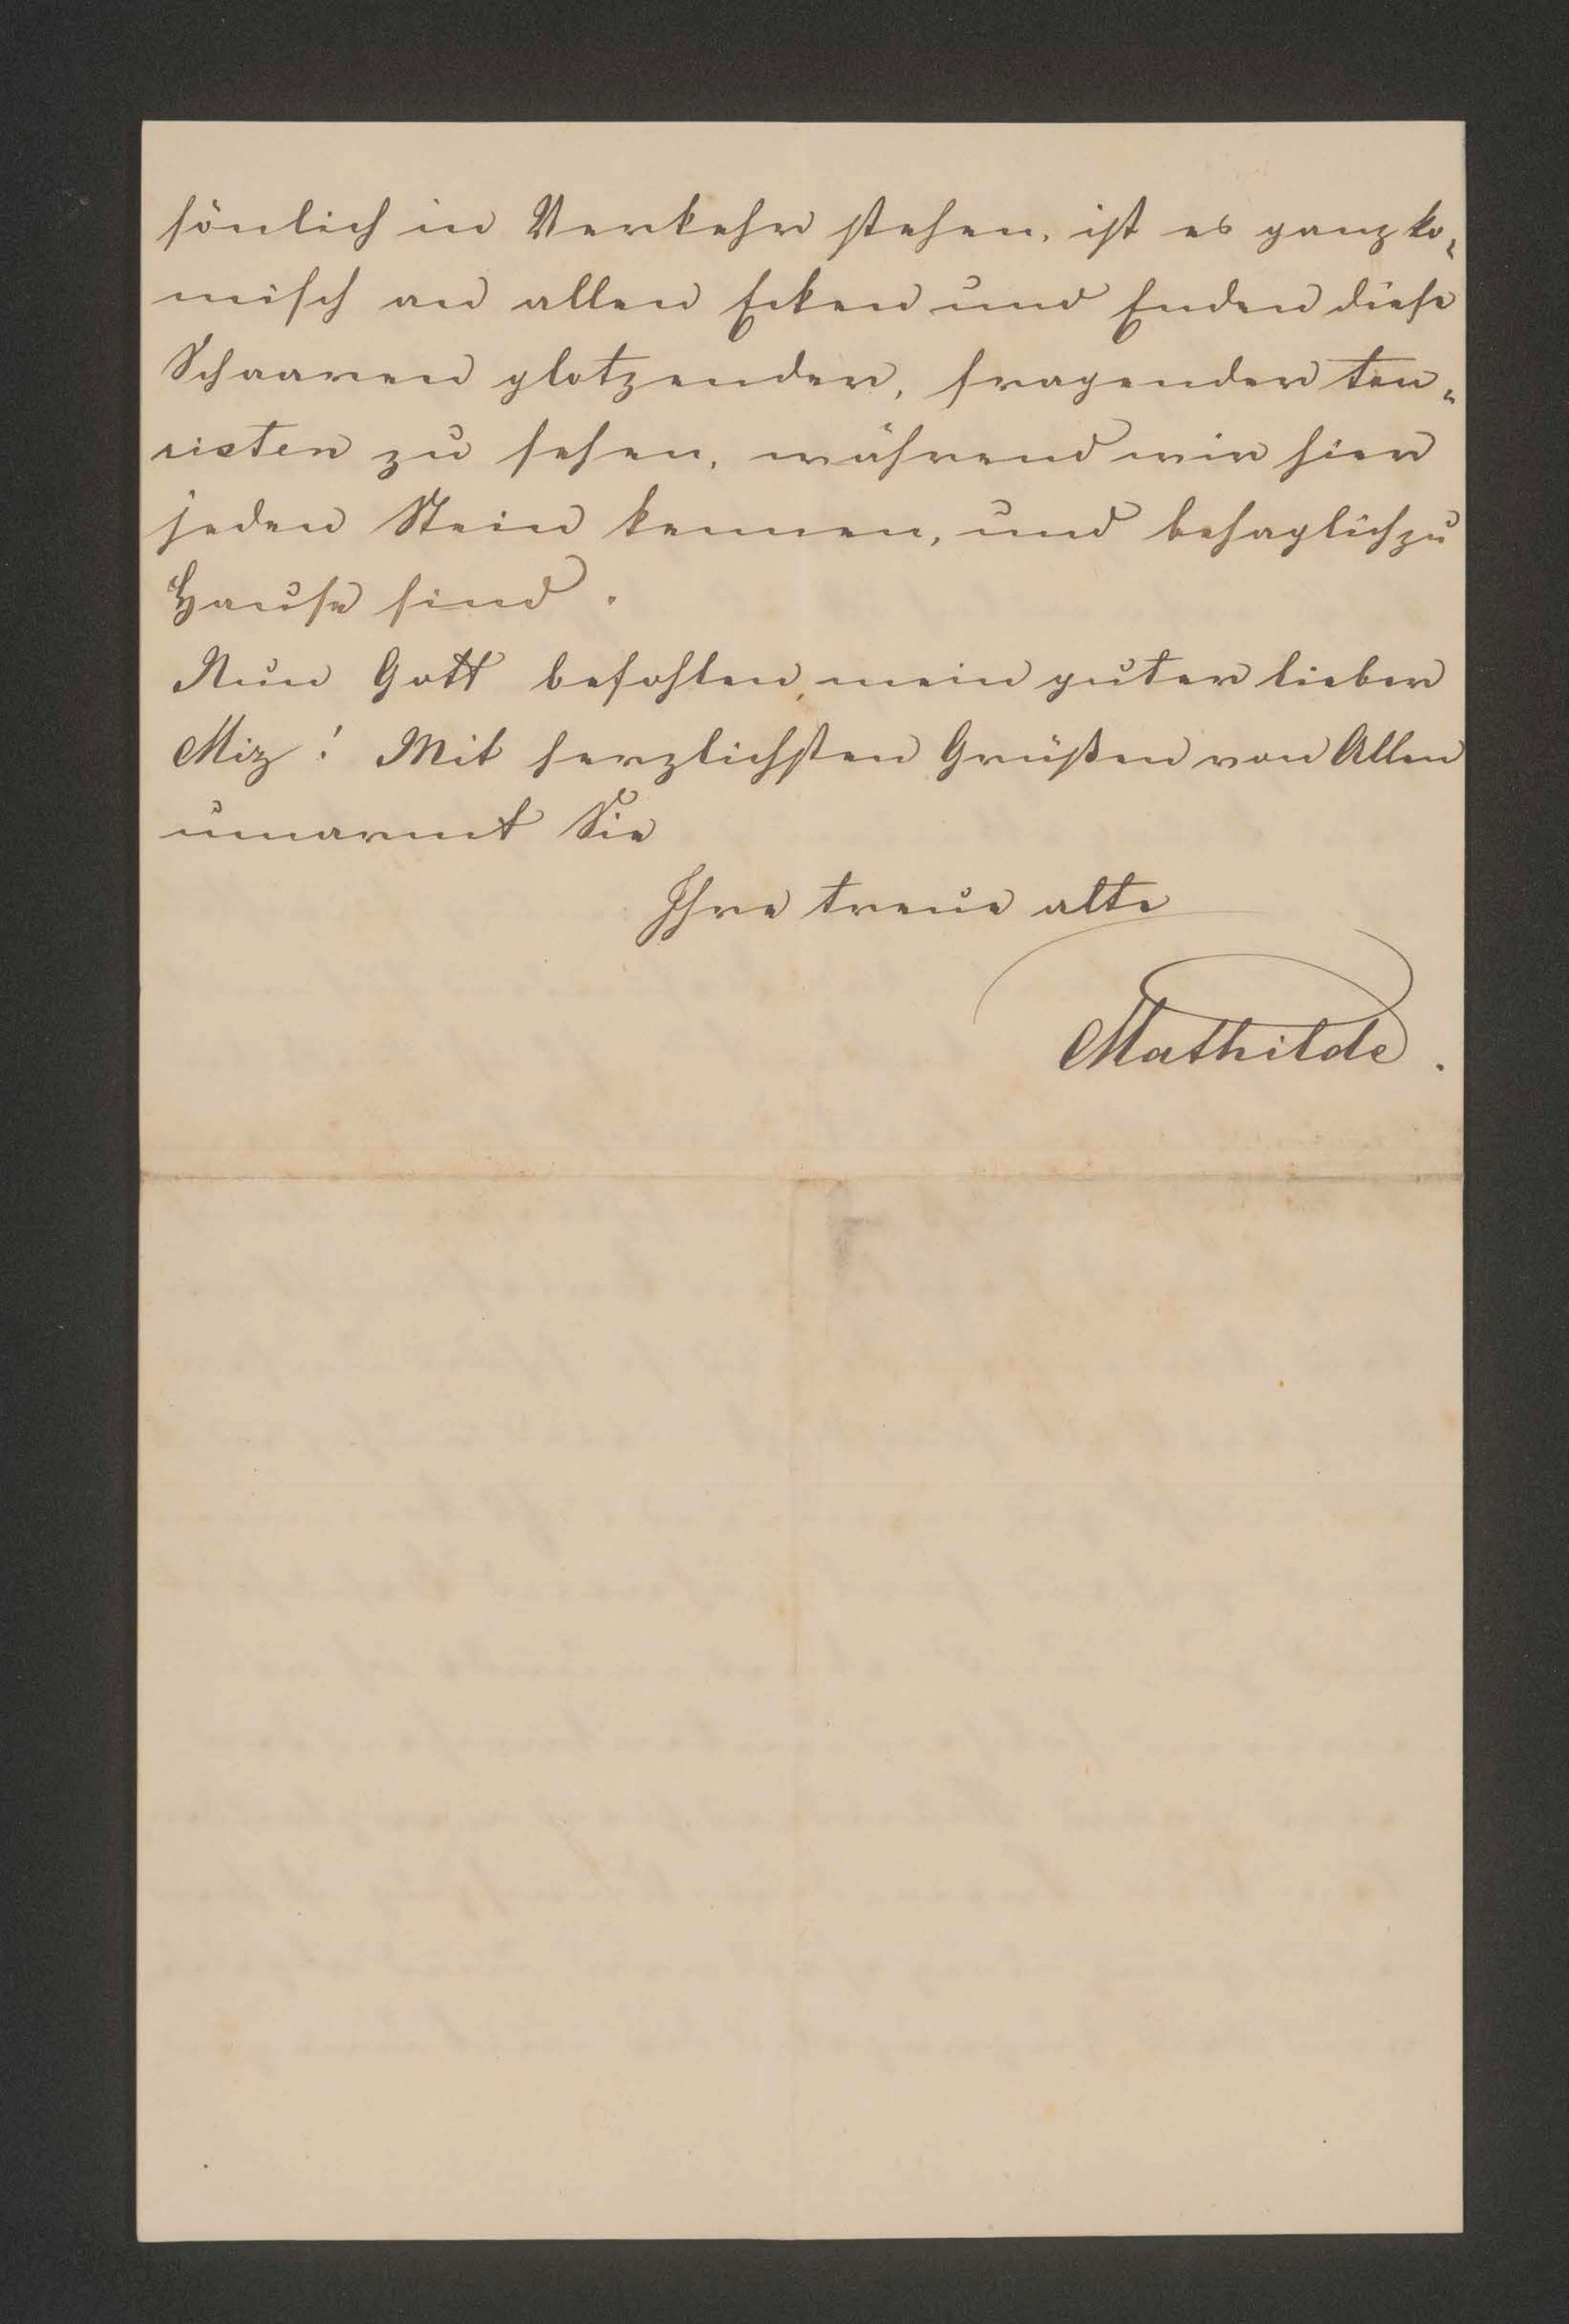 sönlich in Verkehr stehen, ist es ganz ko-
misch an allen Ecken und Enden diese
Schaaren glotzender, fragender Tou-
risten zu sehen, während wir hier
jeden Stein kennen, und behaglich zu
Hause sind.
Nun Gott befohlen, mein guter lieber
Miz! Mit herzlichsten Grüßen von Allen
umarmt Sie
Ihre treue alte
Mathilde.